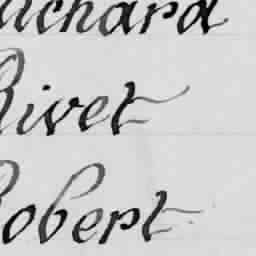 Richard
Rivet
Robert